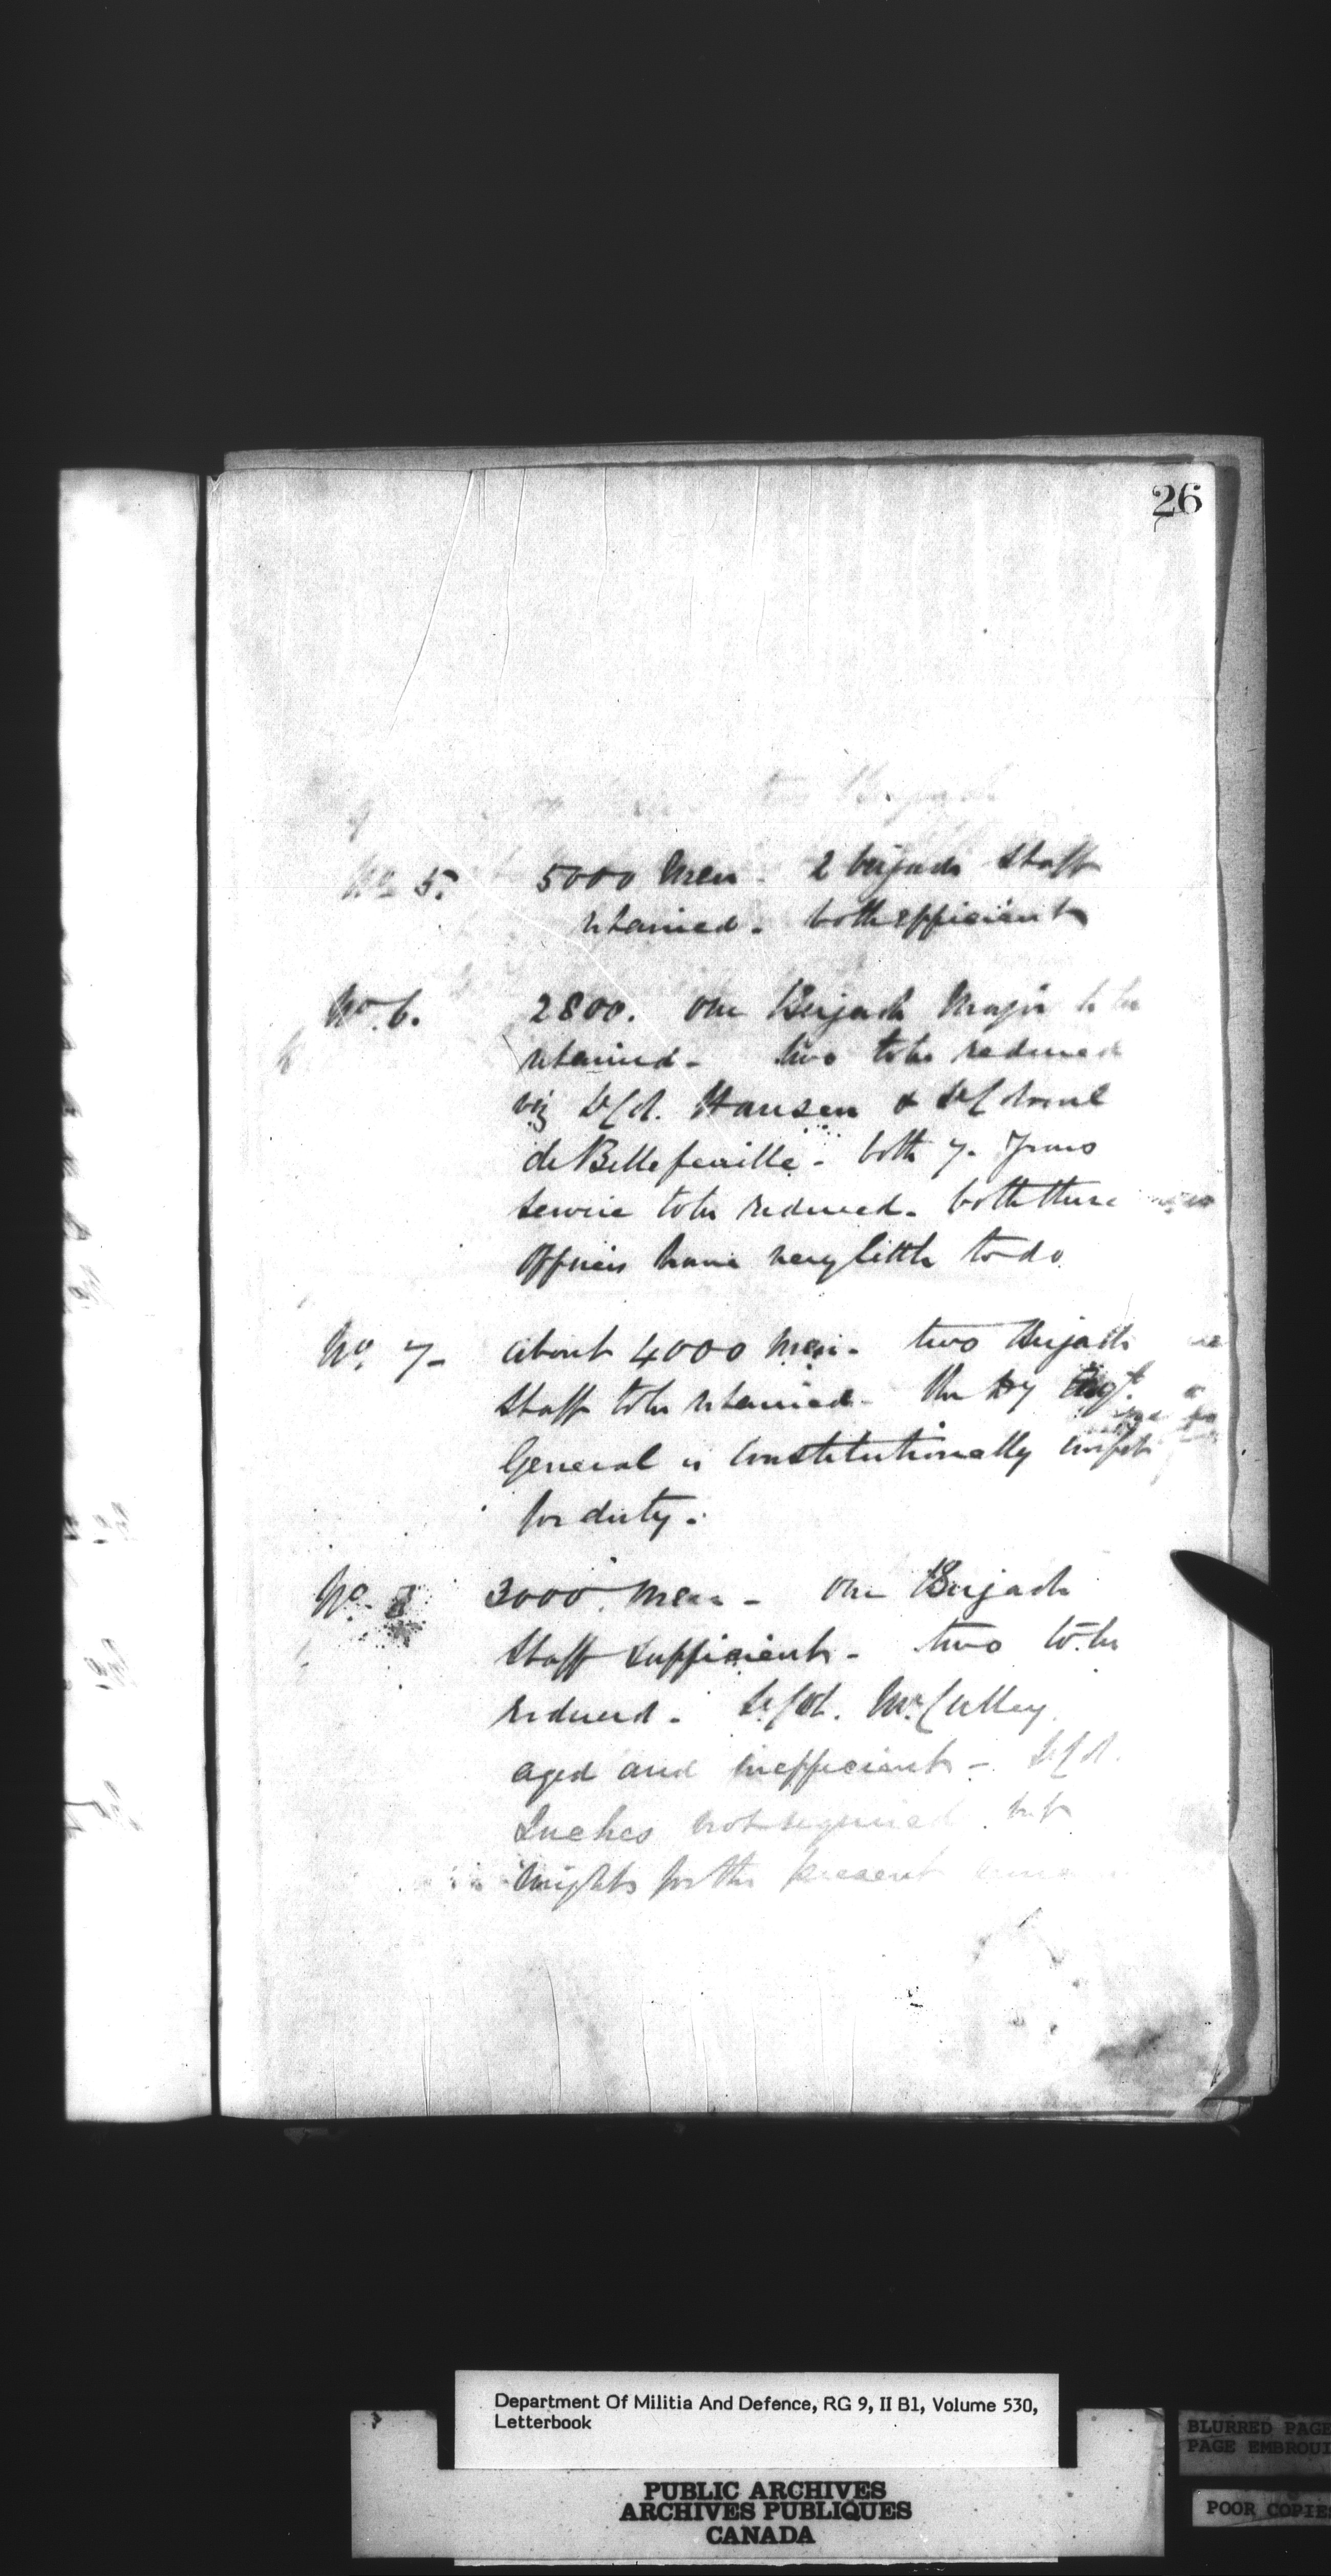 26
No. 5. 5000 Men - 2 brigade Staff
retained - both efficient
No. 6. 2800. One Brigade Major to be
retained - two to be reduced
viz Lt Col. Hansen & Lt Colonel
de Bellefeuille - both 7. Years
service to be reduced. both these
officers have very little to do
No. 7- about 4000 Men - two Brigade
Staff to be retained - The Dy
General is constitutionally unfit
for duty.
No. 8 3000. Men - One Brigade
Staff sufficient - two to be
reduced. Lt. Col. McCulley
aged and inefficient - Lt Col.
Inches not required. but
might for the present
Department Of Militia And Defence, RG 9, II B1, Volume 530,
Letterbook
PUBLIC ARCHIVES
ARCHIVES PUBLIQUES
CANADA
BLURRED PAGE
PAGE EMBROUI
POOR COPIES